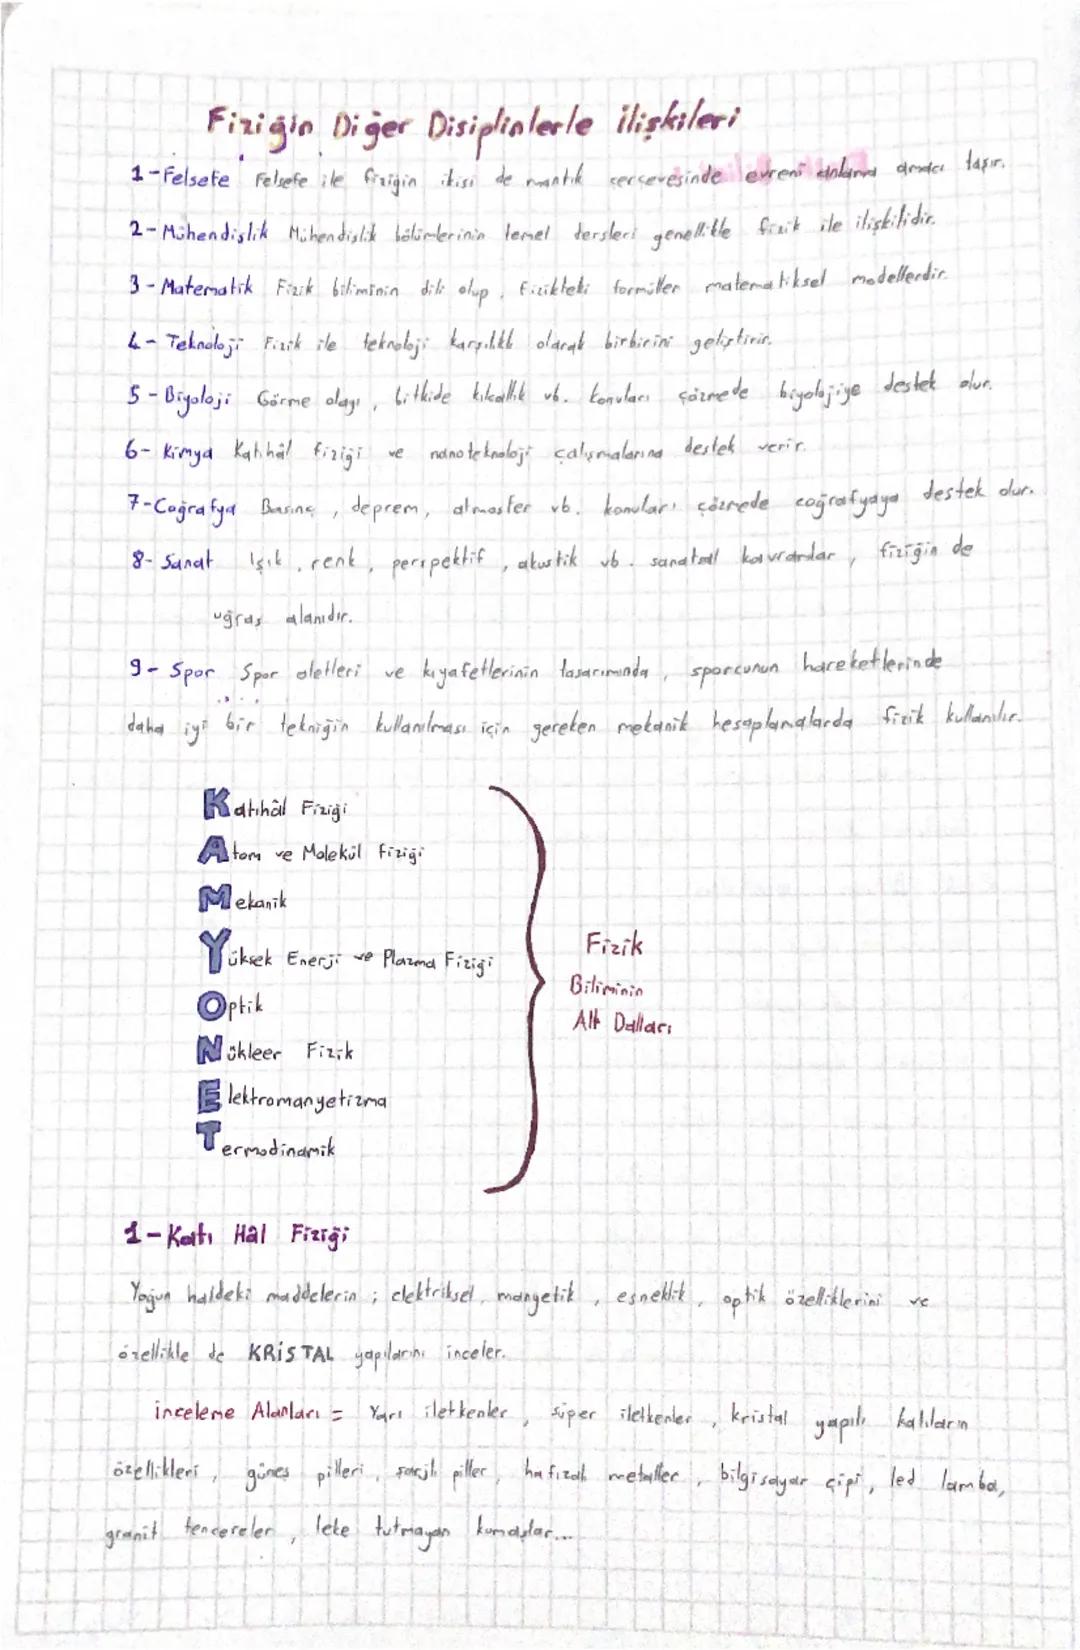 Fiziğin Diğer Disiplinlerle ilişkileri
1-Felsefe Felsefe ile fiziğin ikisi de mantık çerçevesinde evreni anlama amacı taşır.
2-Mühendislik Mühendislik bölümlerinin temel dersleri genellikle fizik ile ilişkilidir.
3-Matematik Fizik biliminin dili olup, fizikteki formüller matematiksel modellerdir.
4- Teknoloji Fizik ile teknoloji karşılıklı olarak birbirini geliştirir.
5-Biyoloji Görme olayı, bitkide kılcallık vb. konuları çözmede biyolojiye destek olur.
6- Kimya Katıhâl fiziği ve nanoteknoloji çalışmalarına destek verir.
7-Coğrafya Basınç, deprem, atmosfer vb. konuları çözmede coğrafyaya destek olur.
8- Sanat Işık, renk, perspektif, akustik vb. sanatsal kavramlar, fiziğin de
uğraş alanıdır.
9- Spor Spor aletleri ve kıyafetlerinin tasarımında, sporcunun hareketlerinde
daha iyi bir tekniğin kullanılması için gereken mekanik hesaplamalarda fizik kullanılır.
Katıhâl Fiziği
Atom ve Molekül Fiziği
Mekanik
Yüksek Enerji ve Plazma Fiziği
Optik
Nükleer Fizik
Elektromanyetizma
Termodinamik
Fizik
Biliminin
Alt Dalları
1-Katı Hâl Fiziği
Yoğun haldeki maddelerin; elektriksel, manyetik, esneklik, optik özelliklerini ve
özellikle de KRİSTAL yapılarını inceler.
inceleme Alanları = Yarı iletkenler, süper iletkenler, kristal yapılı katıların
özellikleri, güneş pilleri, şarjlı piller, hafızalı metaller, bilgisayar çipi, led lamba,
granit tencereler, leke tutmayan kumaşlar...